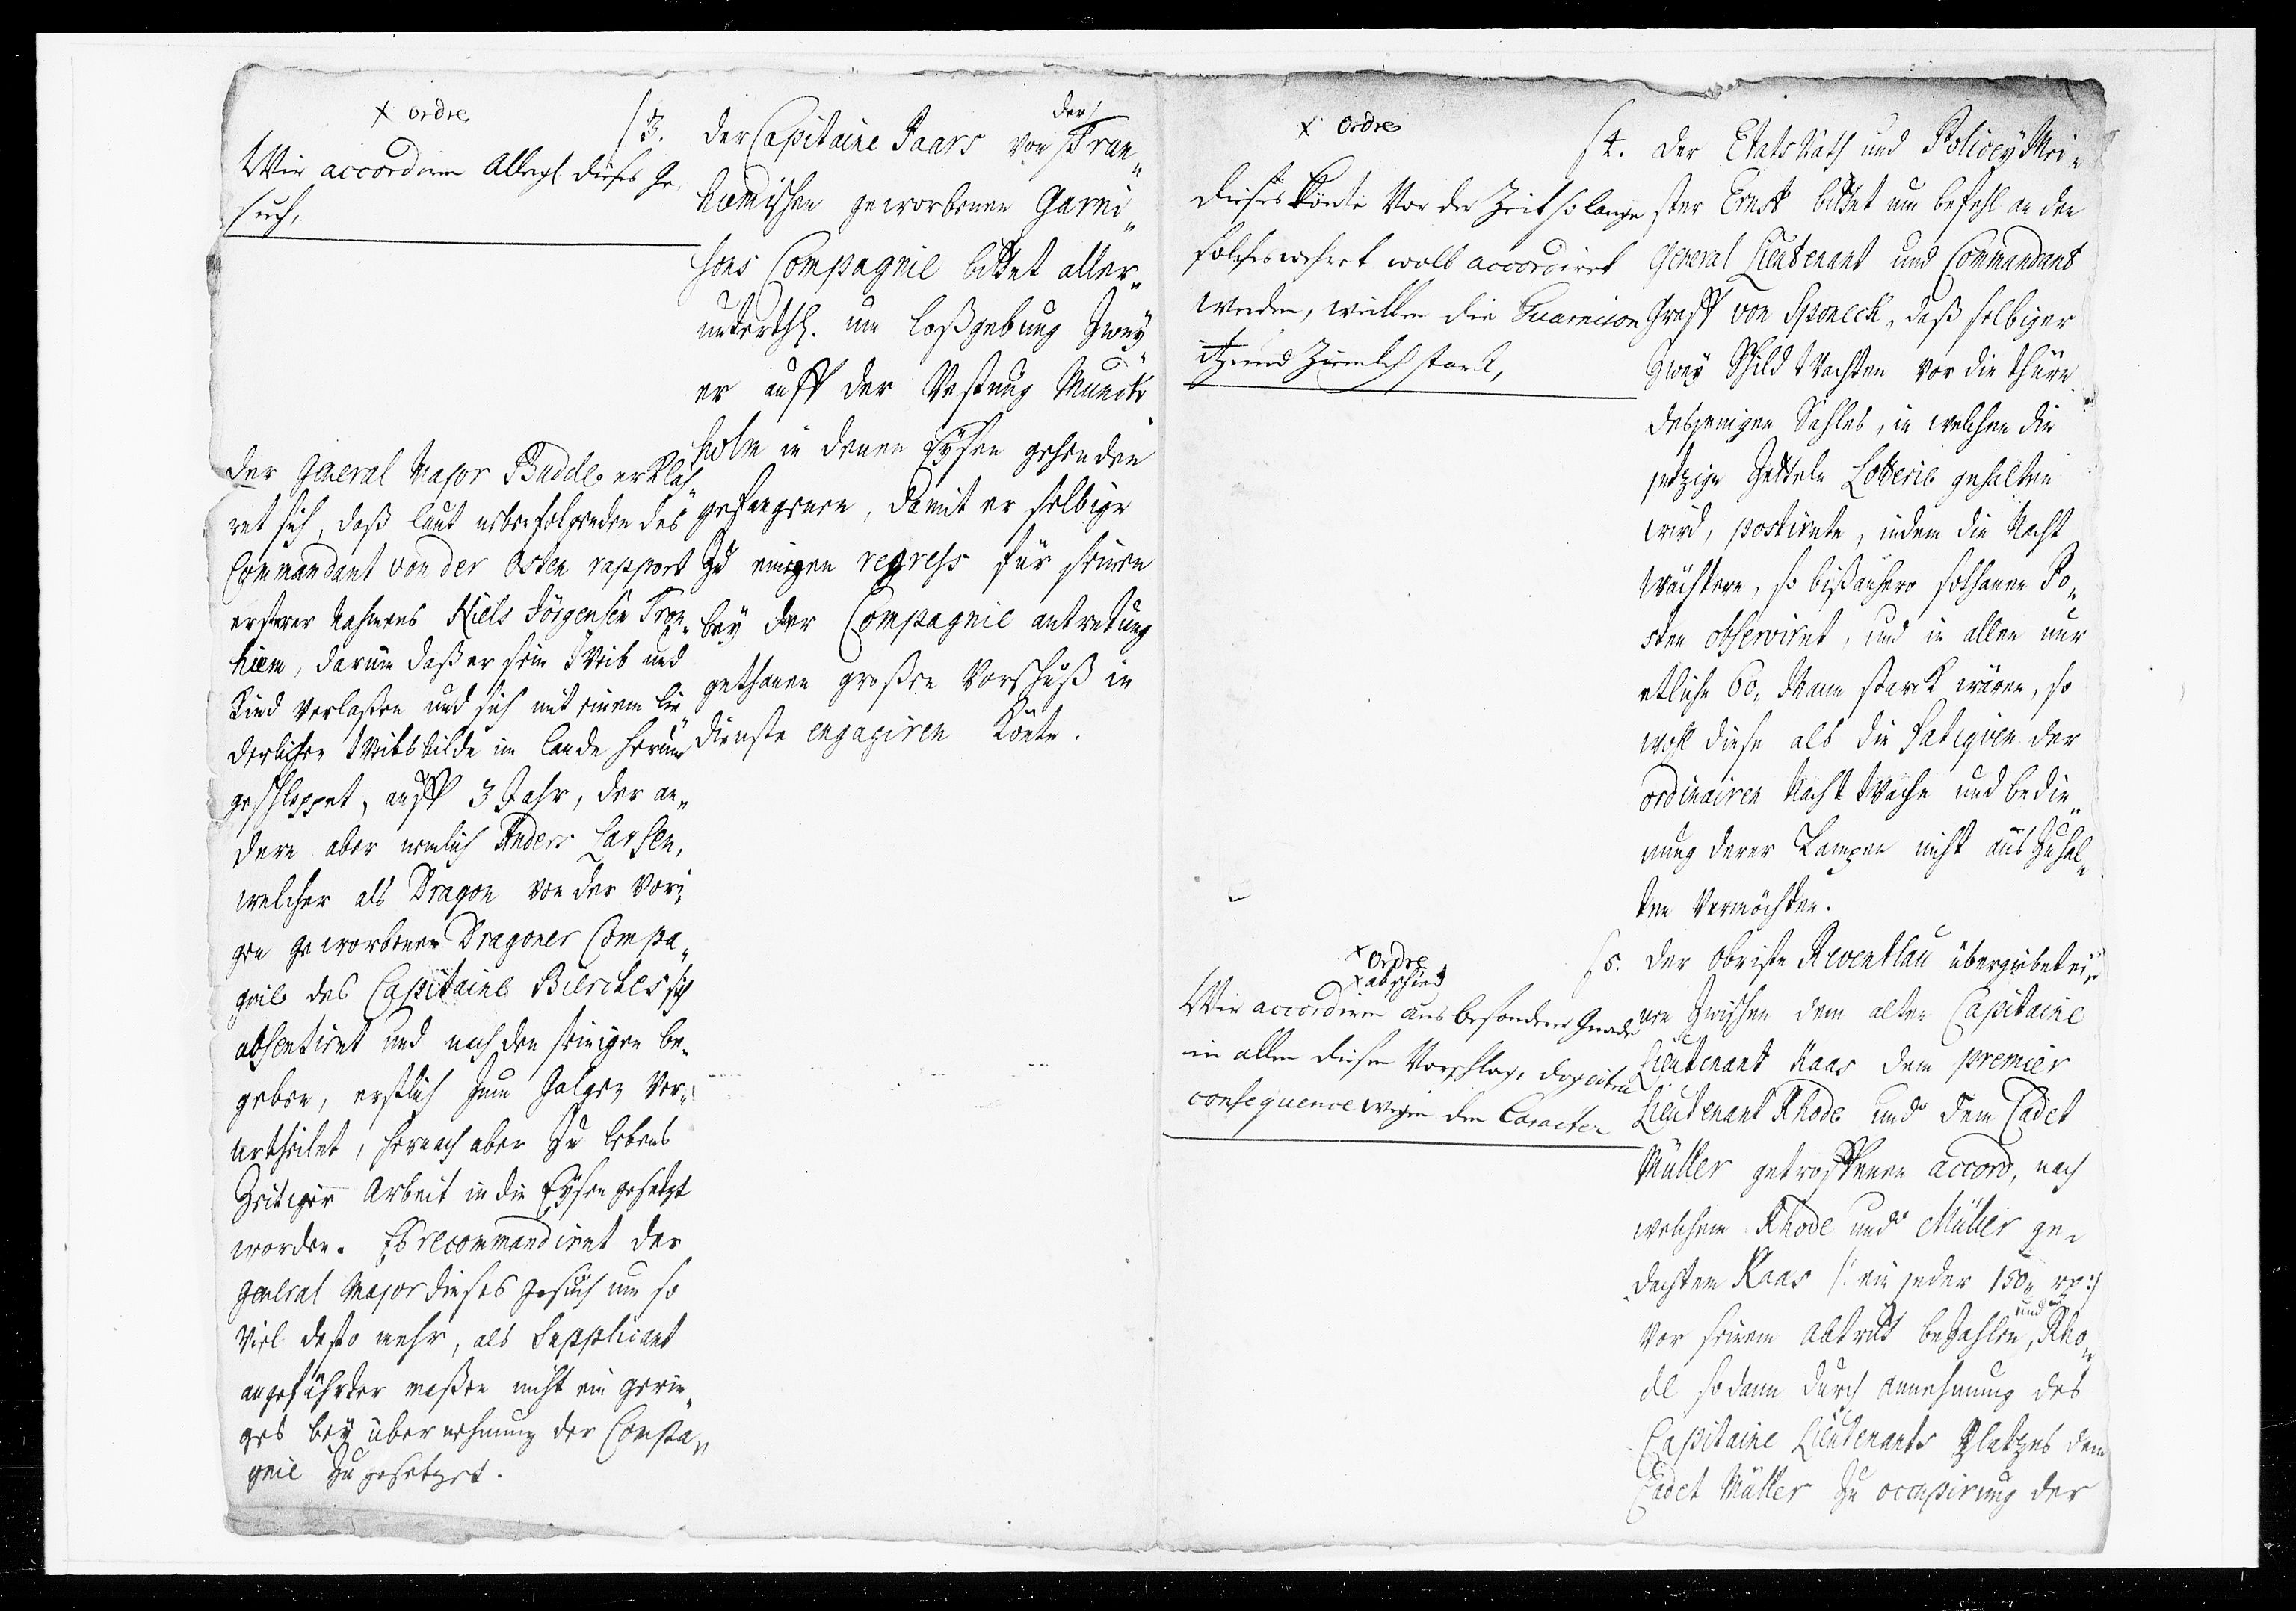 x ordre
Wir accordiren Allergl. dieses Ge,
such,
§ 3. der Capitaine Paars von der Tron„
hiemischen geworbenen Garni„
sons Compagnie bittet aller„
unterthl. um loßgebung Zwey
er auff der Vestung Munck
holm in denen Eysen gehenden
gefangenen, damit er selbige
Zu einigen regress für seinen
bey der Compagnie antretung
gethanen großen Vorschuß in
dienste engagiren Könte.
der General Major Budde erkläh„
ret sich, daß laut nebenfolgenden des
Commandant von der Osten rapport
ersterer Nahmens Niels Jörgensen Tron„
hiem, darum daß er sein Weib und
Kind verlaßen und sich mit einem lie
derlichen Weibsbilde im lande herum
geschleppet, auff 3 Jahr, der an„
dere aber nemlich Anders Larsen,
welcher als Dragon von der Vori„
gen geworbenen Dragoner Compa„
gnie des Capitaine Bierches sich
absentiret und nach den seinigen be„
geben, erstlich zum Galgen Ver„
urtheilet, hernach aber Zu lebens
Zeitiger Arbeit in die Eysen gesetzt
worden. Es recommandiret der
General Major dieses gesuch um so
viel desto mehr, als Supplicant
angeführter maßen nicht ein gerin„
ges bey übernehmung der Compa„
gnie Zugesetzet.
x Ordre
dieses könte Vor der Zeit so lange
solches wehret woll accordiret
werden, weillen die Guarnison
itzund Ziemlich starck,
§ 4. der Etats Rath und Policey Mei„
ster Ernst bittet um befehl an den
General Lieutenant und Commandant
Graff von Sponeck, daß selbiger
Zwey Schild Wachten vor die thüre
desjenigen Sahles, in welchen die
jetzige Zettele Lotterie gehalten
wird, postirete, indem die Nacht
Wächtere, so bißanhero solchanen Po„
sten observiret, und in allen nur
etliche 60„ Mann starck wären, so
wohl diese als die Fatiguen der
ordinairen Nacht Wache und bedie„
nung derer Lampen nicht aus Zuhal„
ten Vermöchten.
x Ordre
x abschied
Wir accordiren aus besonderer Gnade
in allen diesen Vorschlag, doch
consequence wegen den Caracter
§ 5. der Obriste Reventlau übergiebet ei„
nen Zwischen dem alten Capitaine
Lieutenant Kaas dem premier
Lieutenant Rhode und dem Cadet
Müller getroffenen accord, nach
welchem Rhode und Müller ge„
dachten Kaas /: ein jeder 150„ rxr :/
Vor seinem Abtritt beZahlen, und Rho„
de sodann durch annehmung des
Capitaine Lieutenants Platzes dem
Cadet Müller Zu occupirung der